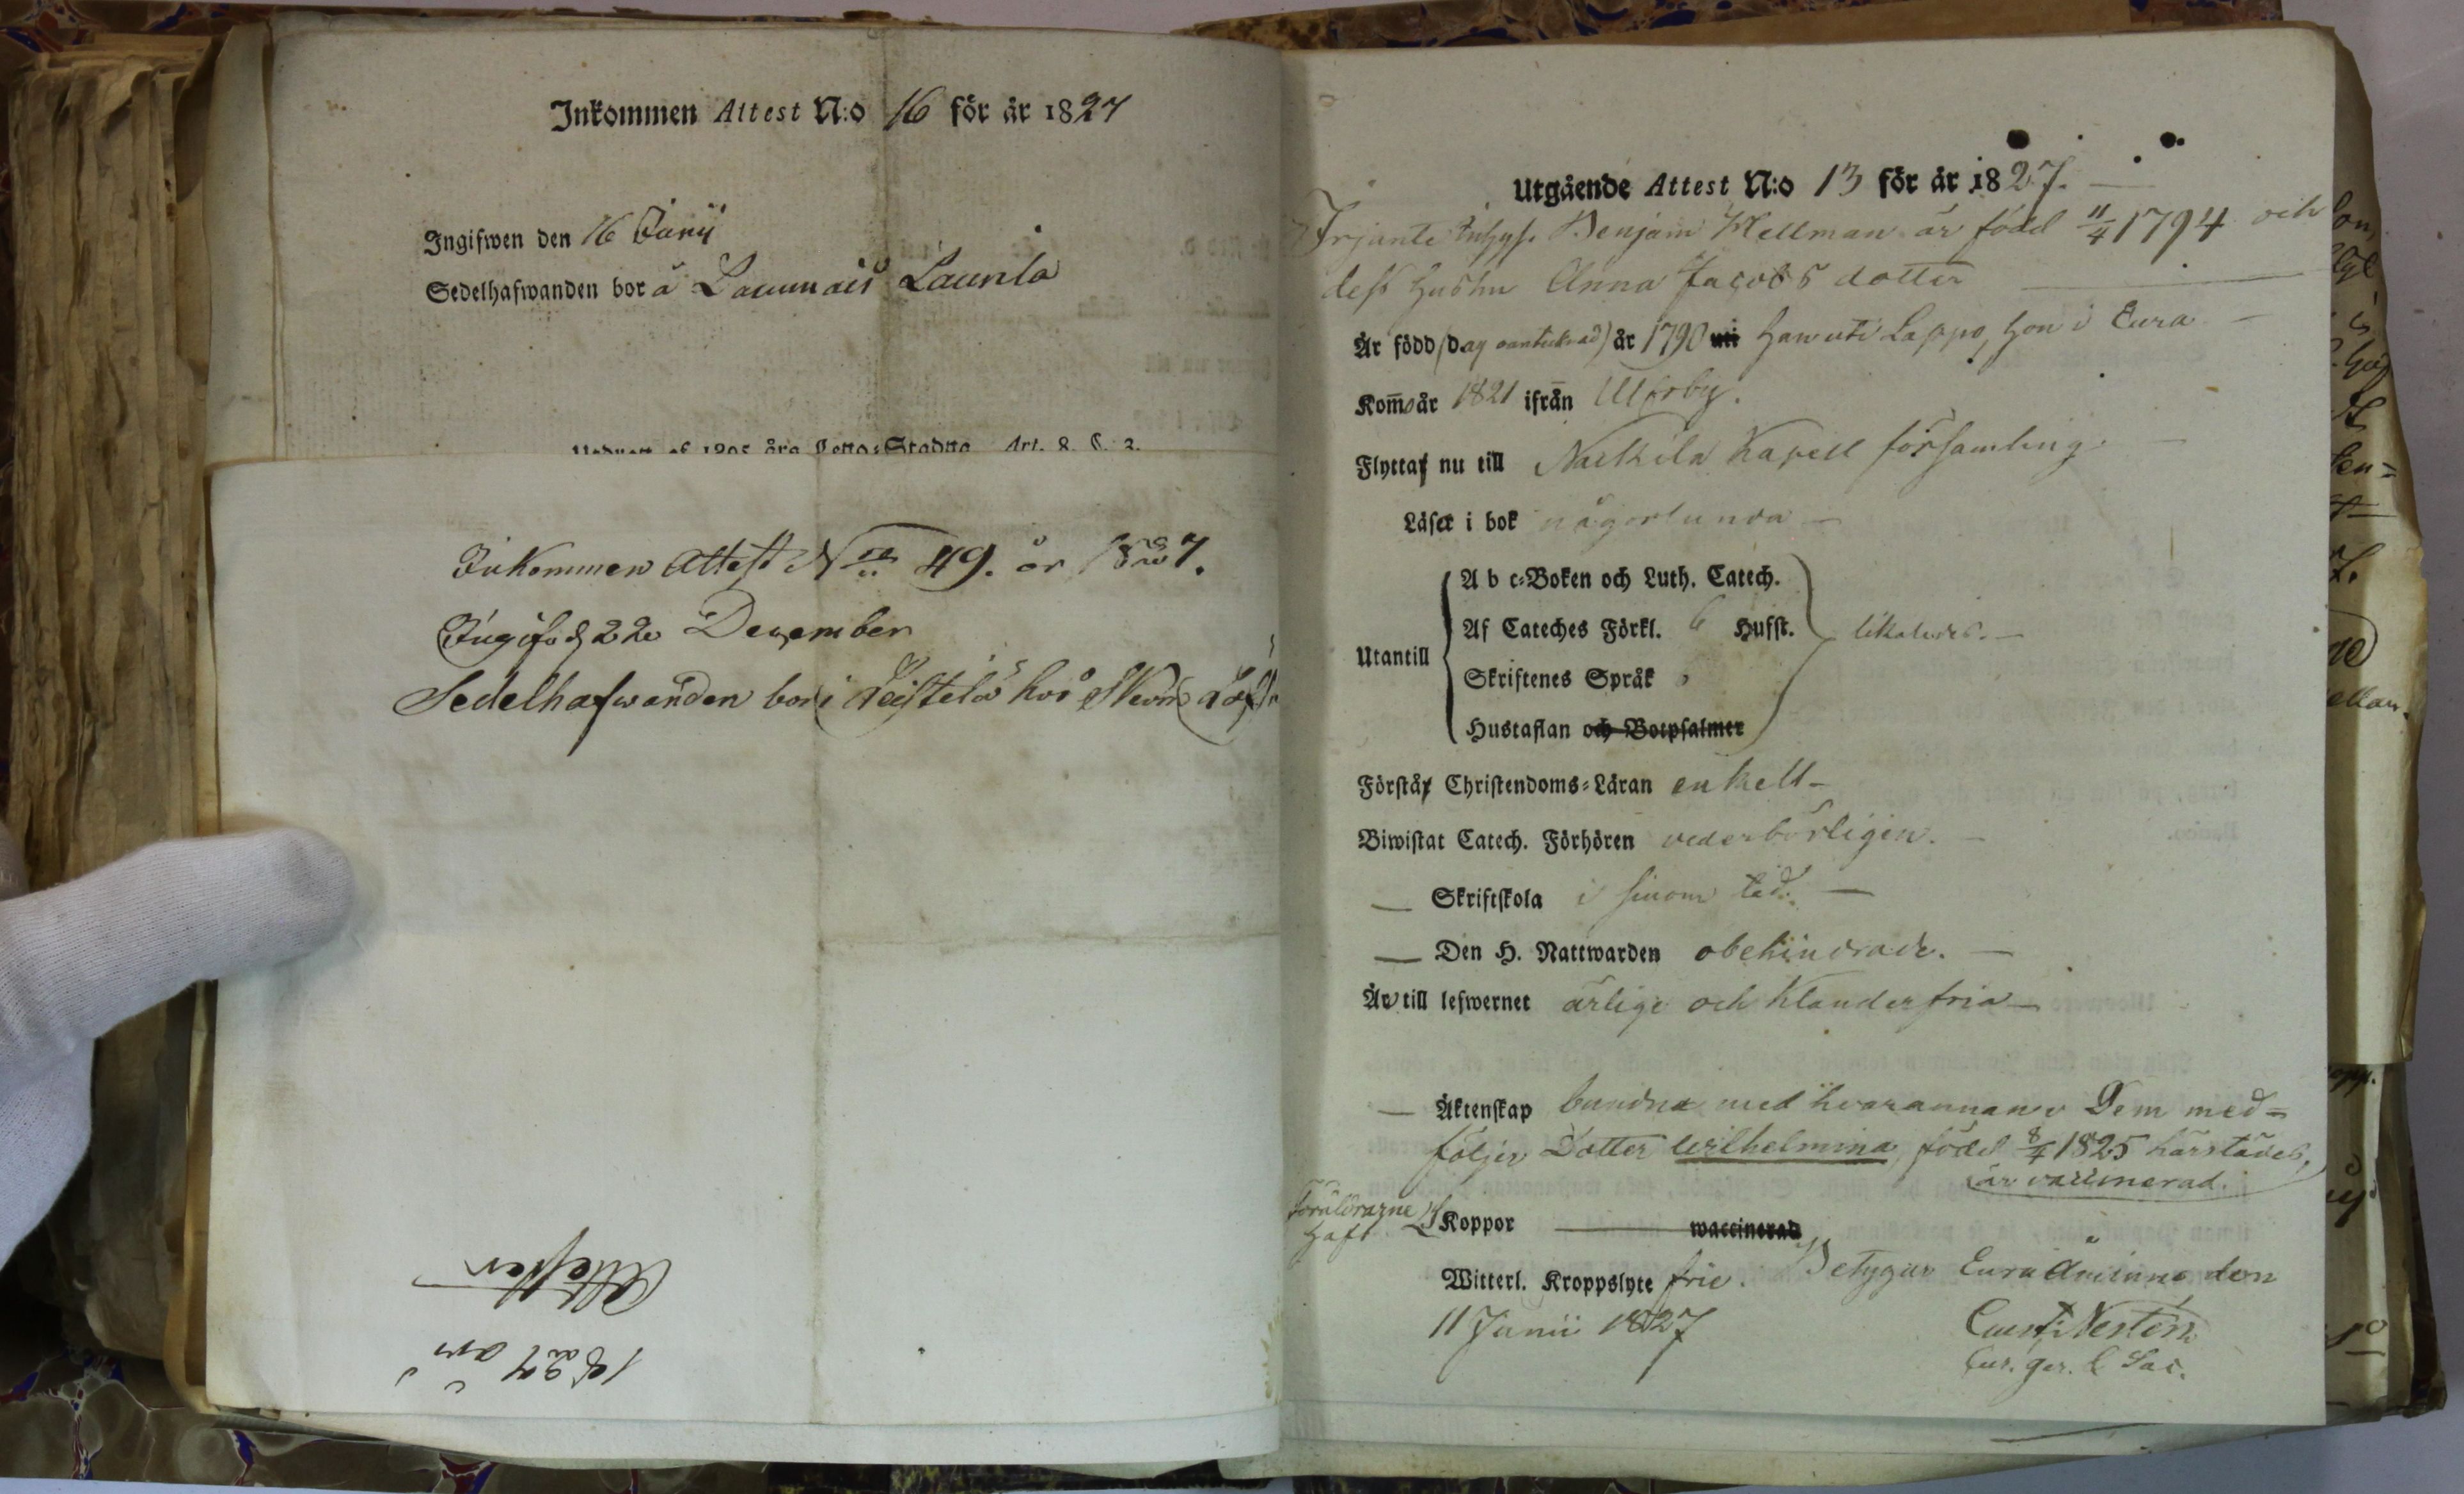 Inkommen Attest N:o 16 för år 1827
Ingifwen den 16 Junii
Sedelhafwanden bor å Launois Launla
Utdrag af 1805 års Lego-Stadga Art. 8. §. 2.
Inkommen Attest N:ro 49. år 1827.
Ingifv. d. 22 December
Sedelhafwanden bor i hos
Attester
1827 års
Utgående Attest N:o 13 för år 1827.
Inhys. Benjam Hellman är född 11/4 1794 och
dess hustru Anna Jacobsdotter
År född (dag oantecknad) år 1790 uti han uti Lappo, hon i Eura
Kommo år 1821 ifrån Ulfsby.
Flytta nu till Nackila Kapell församling.
Läser i bok någorlunda
Utantill
A b c-Boken och Luth. Catech.
Af Cateches Förkl. 6 Husst. likaledes.
Skriftenes Språk
Hustaflan och Botpsalmer
Förstår Christendoms-Läran enkelt
Biwistat Catech. Förhören vederbörligen.
Skriftskola i sinom tid.
Den H. Nattwarden obehindrade.
Är till lefwernet ärlige och klanderfria
Äktenskap bundna med hvarannan. Dem med-
följer Dotter Wilhelmina, född 8/4 1825 härstädes,
är vaccinerad.
Föräldrarne
haft Koppor waccinerad
Witterl. Kroppslyte frie. Betygar Eura Åminne den
11 Junii 1827
Cur. ger. & Sac.